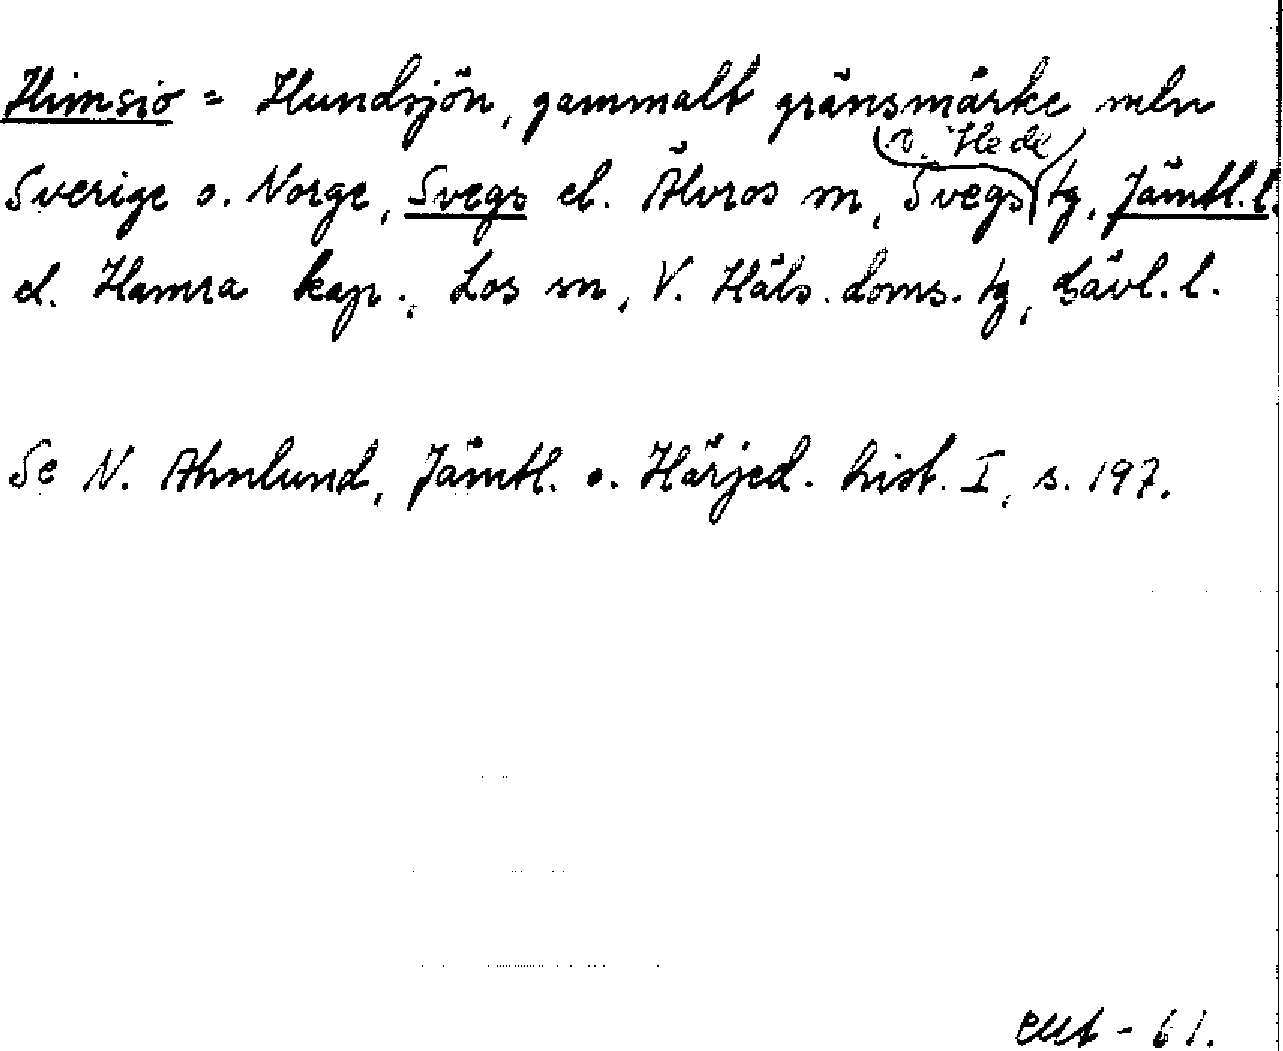 Himsio = Hundsjön, gammalt gränsmärke mln
o. Hede
Sverige o. Norge, Svegs el. Älvros sn, Svegs tg, Jämtl.l.
el. Hamra kap., Los sn, V. Häls. doms. tg, Gävl. l.
Se N. Ahnlund, Jämtl. o. Härjed. hist. I, s. 197.
- 61.